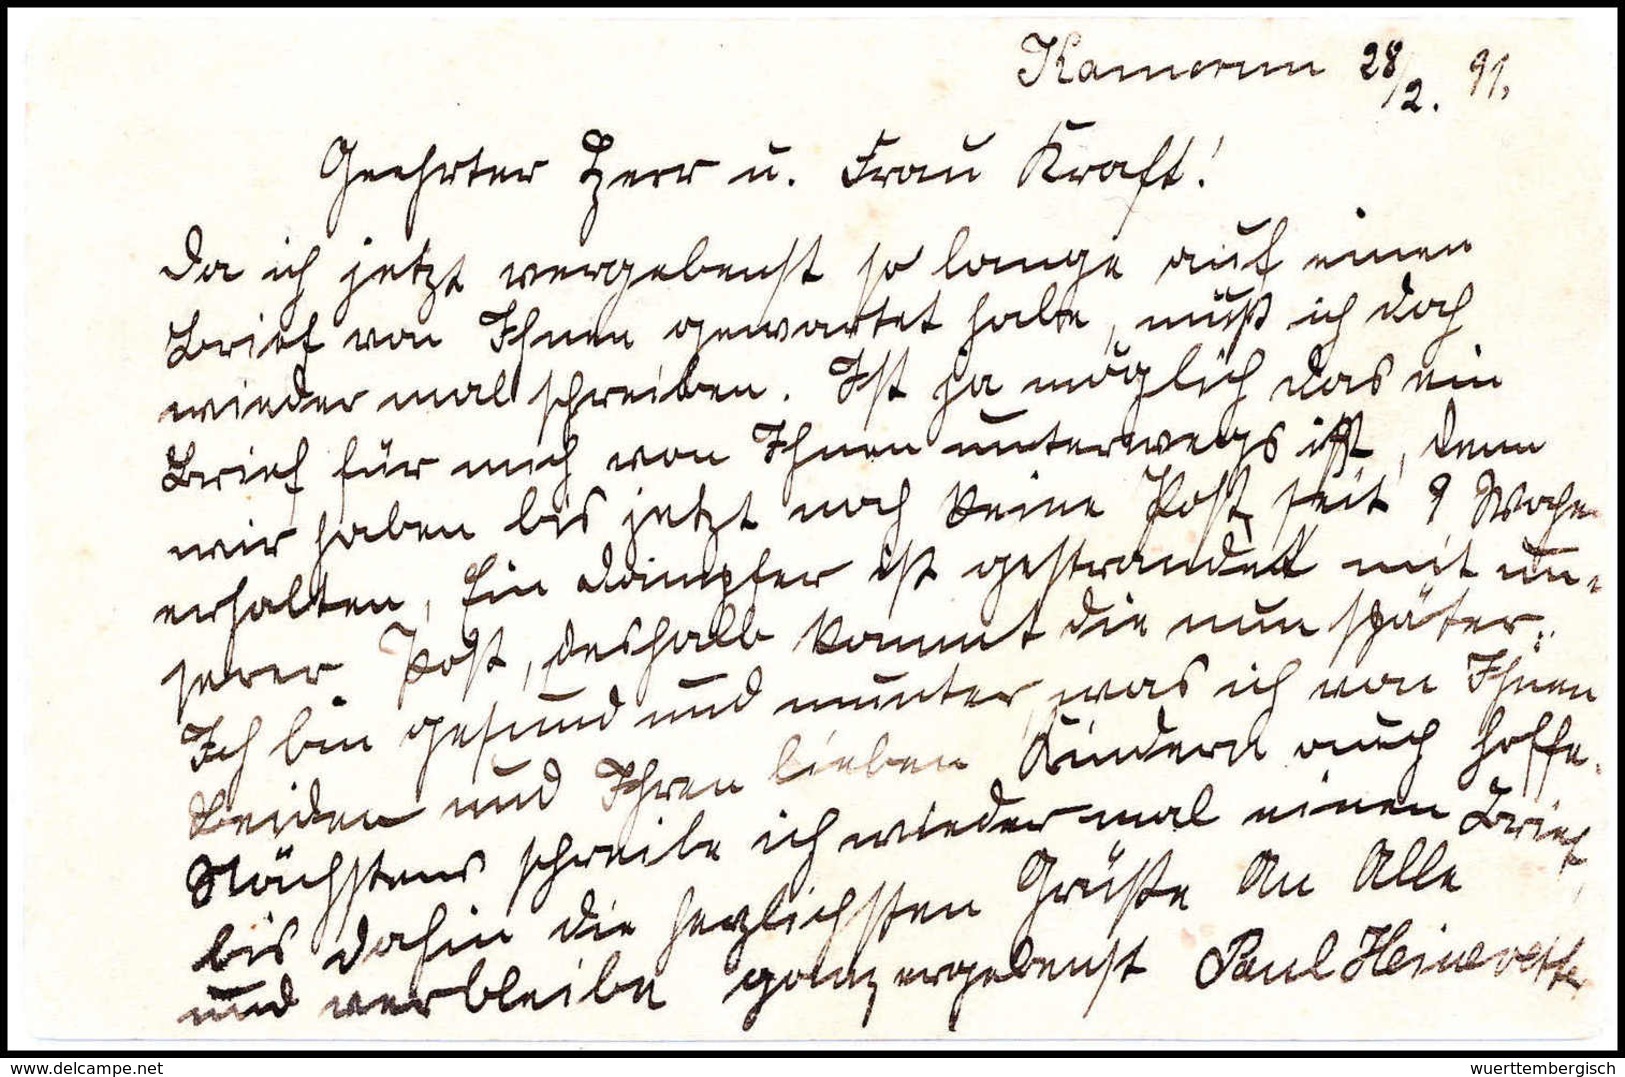 Kamerun 28/2. 91.
Geehrter Herr u. Frau Kraft!
Da ich jetzt vergebenst so lange auf einen
Brief von Ihnen gewartet habe, muß ich doch
wieder mal schreiben. Ist ja möglich das ein
Brief für mich von Ihnen unterwegs ist, denn
wir haben bis jetzt noch keine Post seit 9 Wochen
erhalten, Ein Dampfer ist gestrandet mit un-
serer Post, deshalb kommt die nun später.
Ich bin gesund und munter, was ich von Ihnen
Beiden und Ihren lieben Kindern auch hoffe.
Nächstens schreibe ich wieder mal einen Brief,
bis dahin die herzlichsten Grüße An Alle
und verbleibe ganz ergebenst Paul
www.delcampe.net
wuerttembergisch